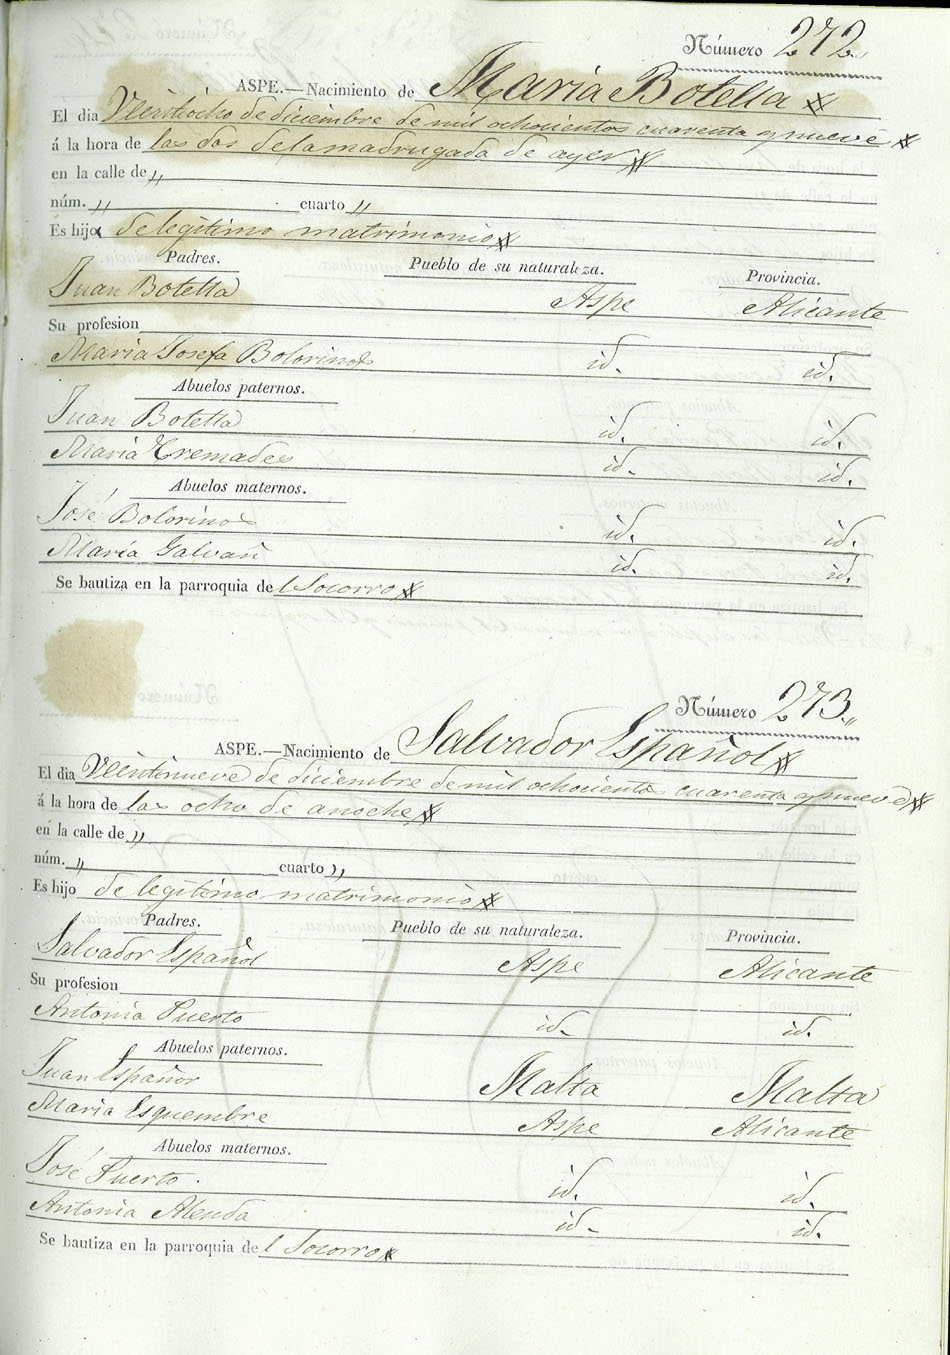 Número 272.
ASPE.—Nacimiento de María Botella
El dia Veintiocho de diciembre de mil ochocientos cuarenta y nueve
á la hora de las dos de la madrugada de ayer
en la calle de "
núm. " cuarto "
Es hija de legítimo matrimonio
Padres. Pueblo de su naturaleza. Provincia.
Juan Botella Aspe Alicante
Su profesion
Maria Josefa Bolorinos id. id.
Abuelos paternos.
Juan Botella id. id.
María Cremades id. id.
Abuelos maternos.
José Bolorinos id. id.
María Galvañ id. id.
Se bautiza en la parroquia del Socorro
Número 273.
ASPE.—Nacimiento de Salvador Español
El dia Veintinueve de diciembre de mil ochocientos cuarenta y nueve
á la hora de las ocho de anoche
en la calle de "
núm. " cuarto "
Es hijo de legítimo matrimonio
Padres. Pueblo de su naturaleza. Provincia.
Salvador Español Aspe Alicante
Su profesion
Antonia Puerto id. id.
Abuelos paternos.
Juan Español Malta Malta
María Esquembre Aspe Alicante
Abuelos maternos.
José Puerto. id. id.
Antonia Alenda id. id.
Se bautiza en la parroquia del Socorro